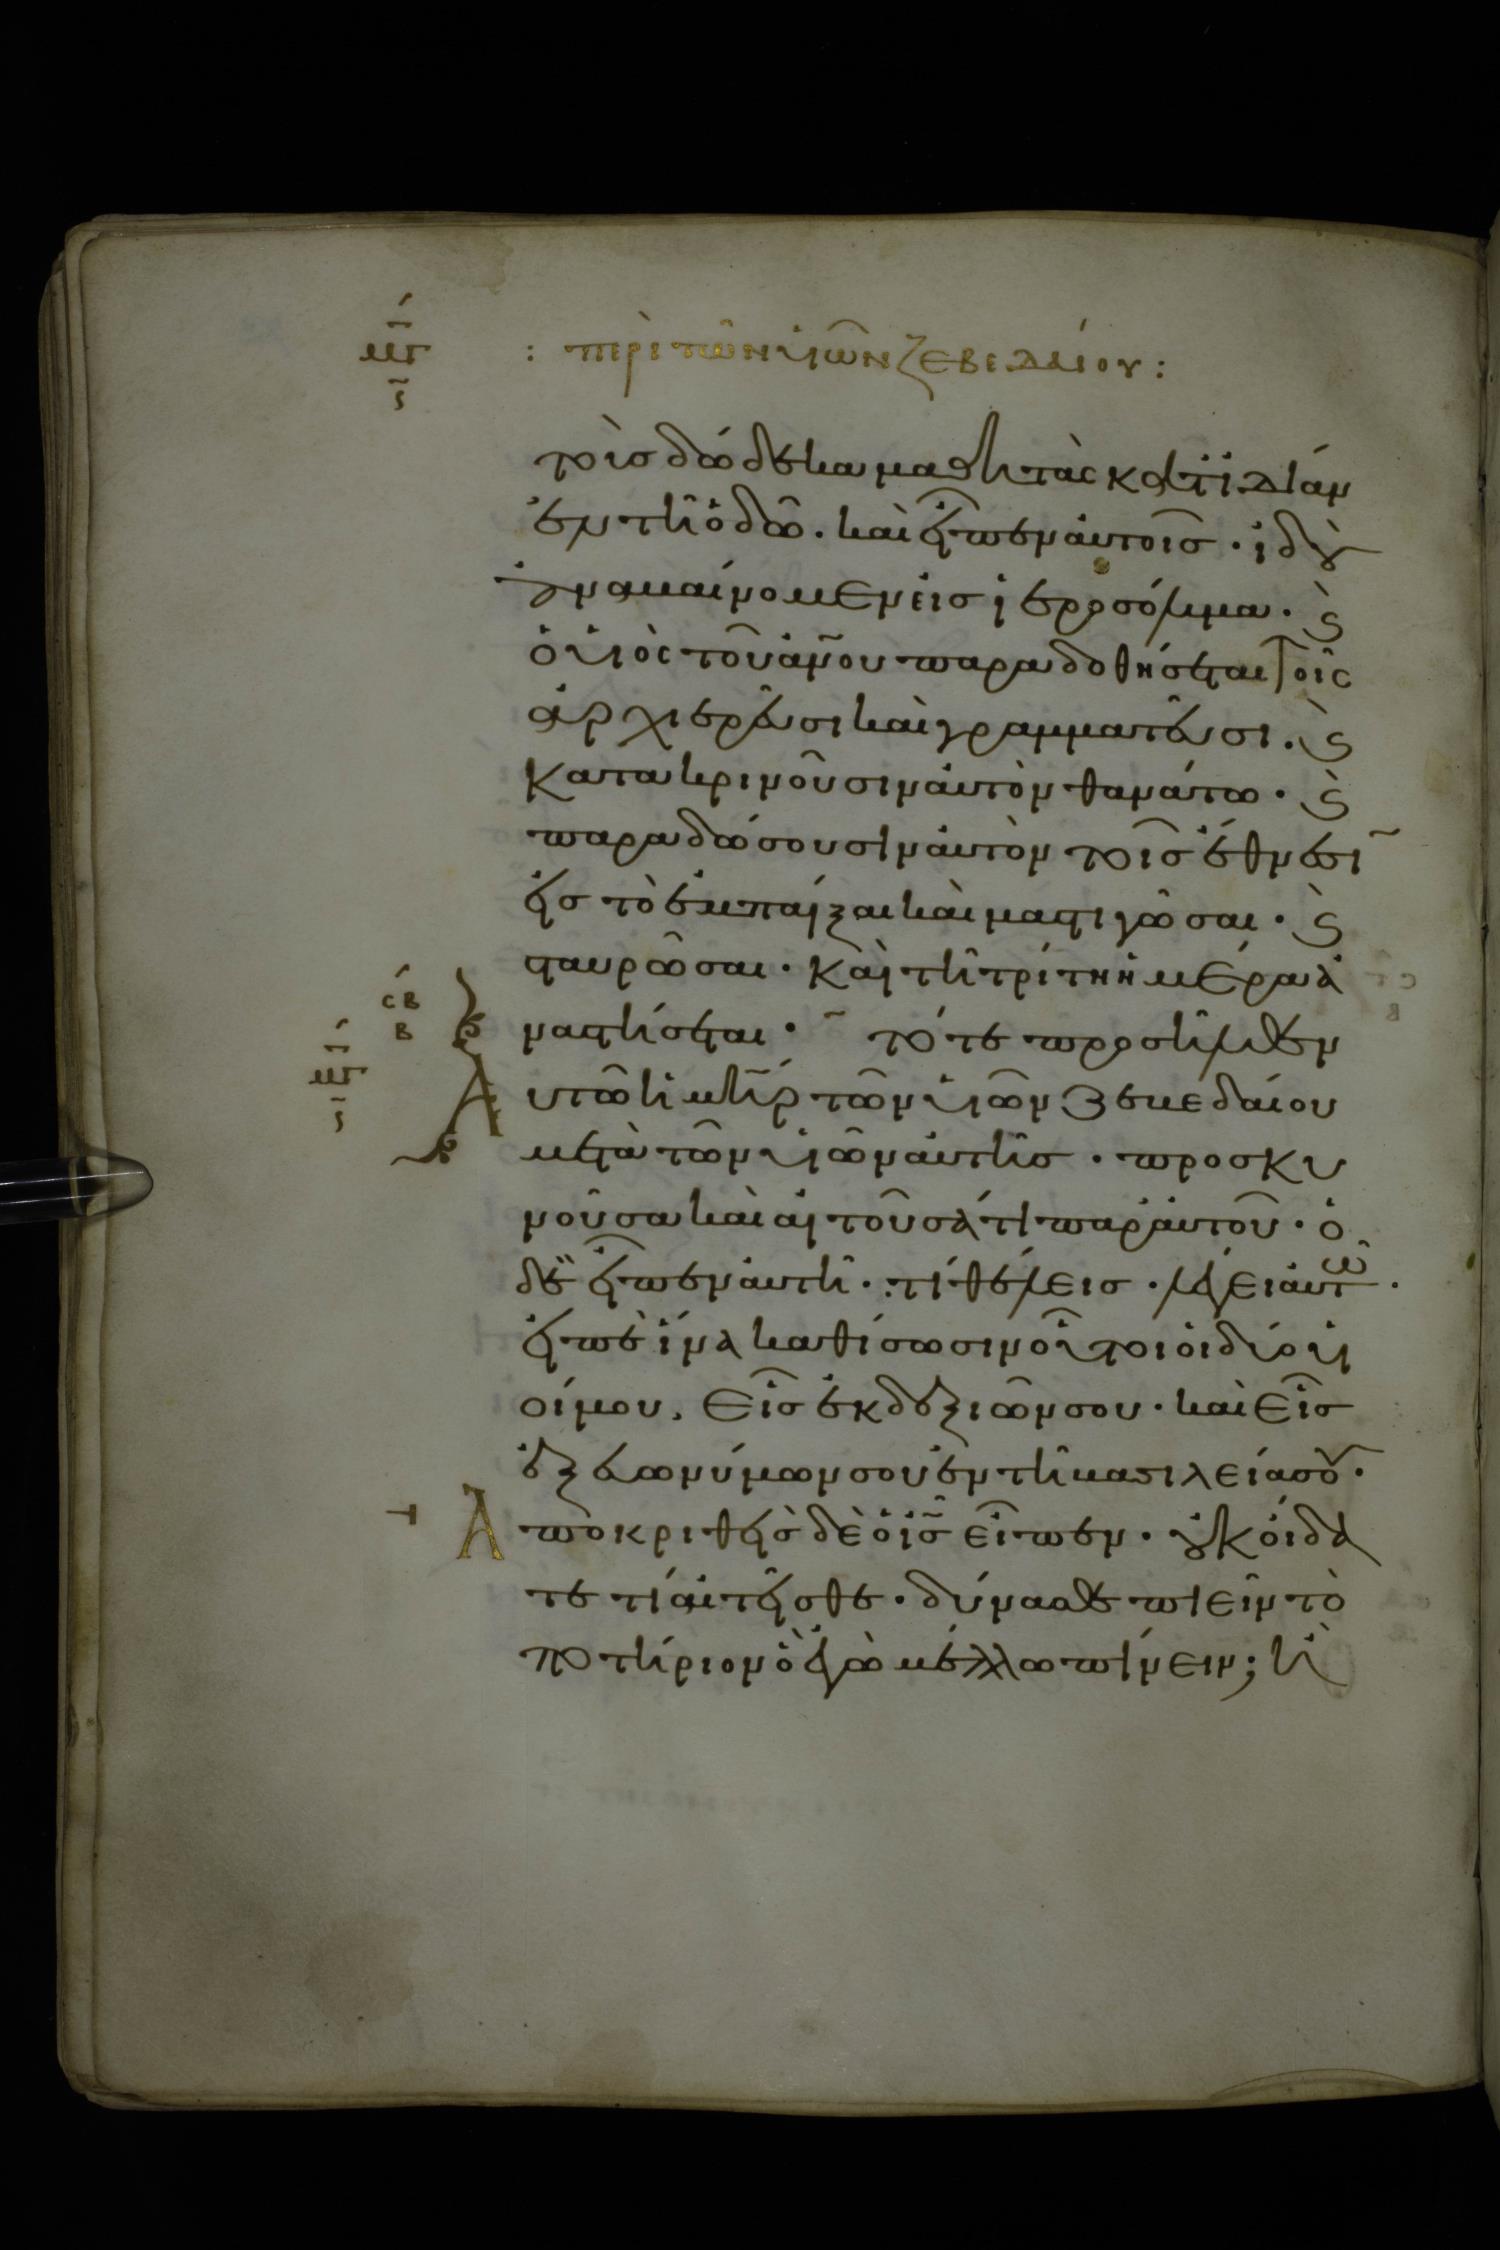 μς
ϛ
: περὶ τῶν υἱῶν ζεβεδαίου :
τοὺσ δώδεκα μαθητὰς κατϊδίαν
ἐν τῆ ὁδῶ. καὶ εἶπεν αὐτοῖσ · ἰδοὺ
ἀναβαίνομεν εἰσ ἱεροσόλυμα · καὶ
ὁ υἱὸς τοῦ ἀνου παραδοθήσεται τοῖς
ἀρχιερεῦσι καὶ γραμματεῦσι. καὶ
κατακρινοῦσιν αὐτὸν θανάτω · καὶ
παραδώσουσιν αὐτὸν τοῖσ ἔθνεσι
εἰσ τὸ ἐμπαῖξαι καὶ μαστιγῶσαι · καὶ
σταυρῶσαι · Καὶ τῆ τρίτη ἡμέρα ἀ
ναστήσεται · τότε προσῆλθεν
σβ
β
μς
ϛ
Α υτῶ ἡ μηρ τῶν υἱῶν Ζεβεδαίου
μετὰ τῶν υἱῶν αὐτῆσ · προσκυ
νοῦσα καὶ αἰτοῦσά τι παρ' αὐτοῦ · ὁ
δὲ εἶπεν αὐτῆ · τί θέλεισ · λέγει αὐτῶ ·
εἰπὲ ἵνα καθίσωσιν οὗτοι οἱ δύο υἱ
οί μου, εἷσ ἐκ δεξιῶν σου · καὶ εἷσ
ἐξ εὐωνύμων σου ἐν τῆ βασιλεία σου ·
Α ποκριθεὶσ δὲ ὁ ισ εἶπεν · οὐκ οἴδα
τε τί αἰτεῖσθε · δύνασθε πιεῖν τὸ
ποτήριον ὃ ἐγὼ μέλλω πίνειν; ἢ